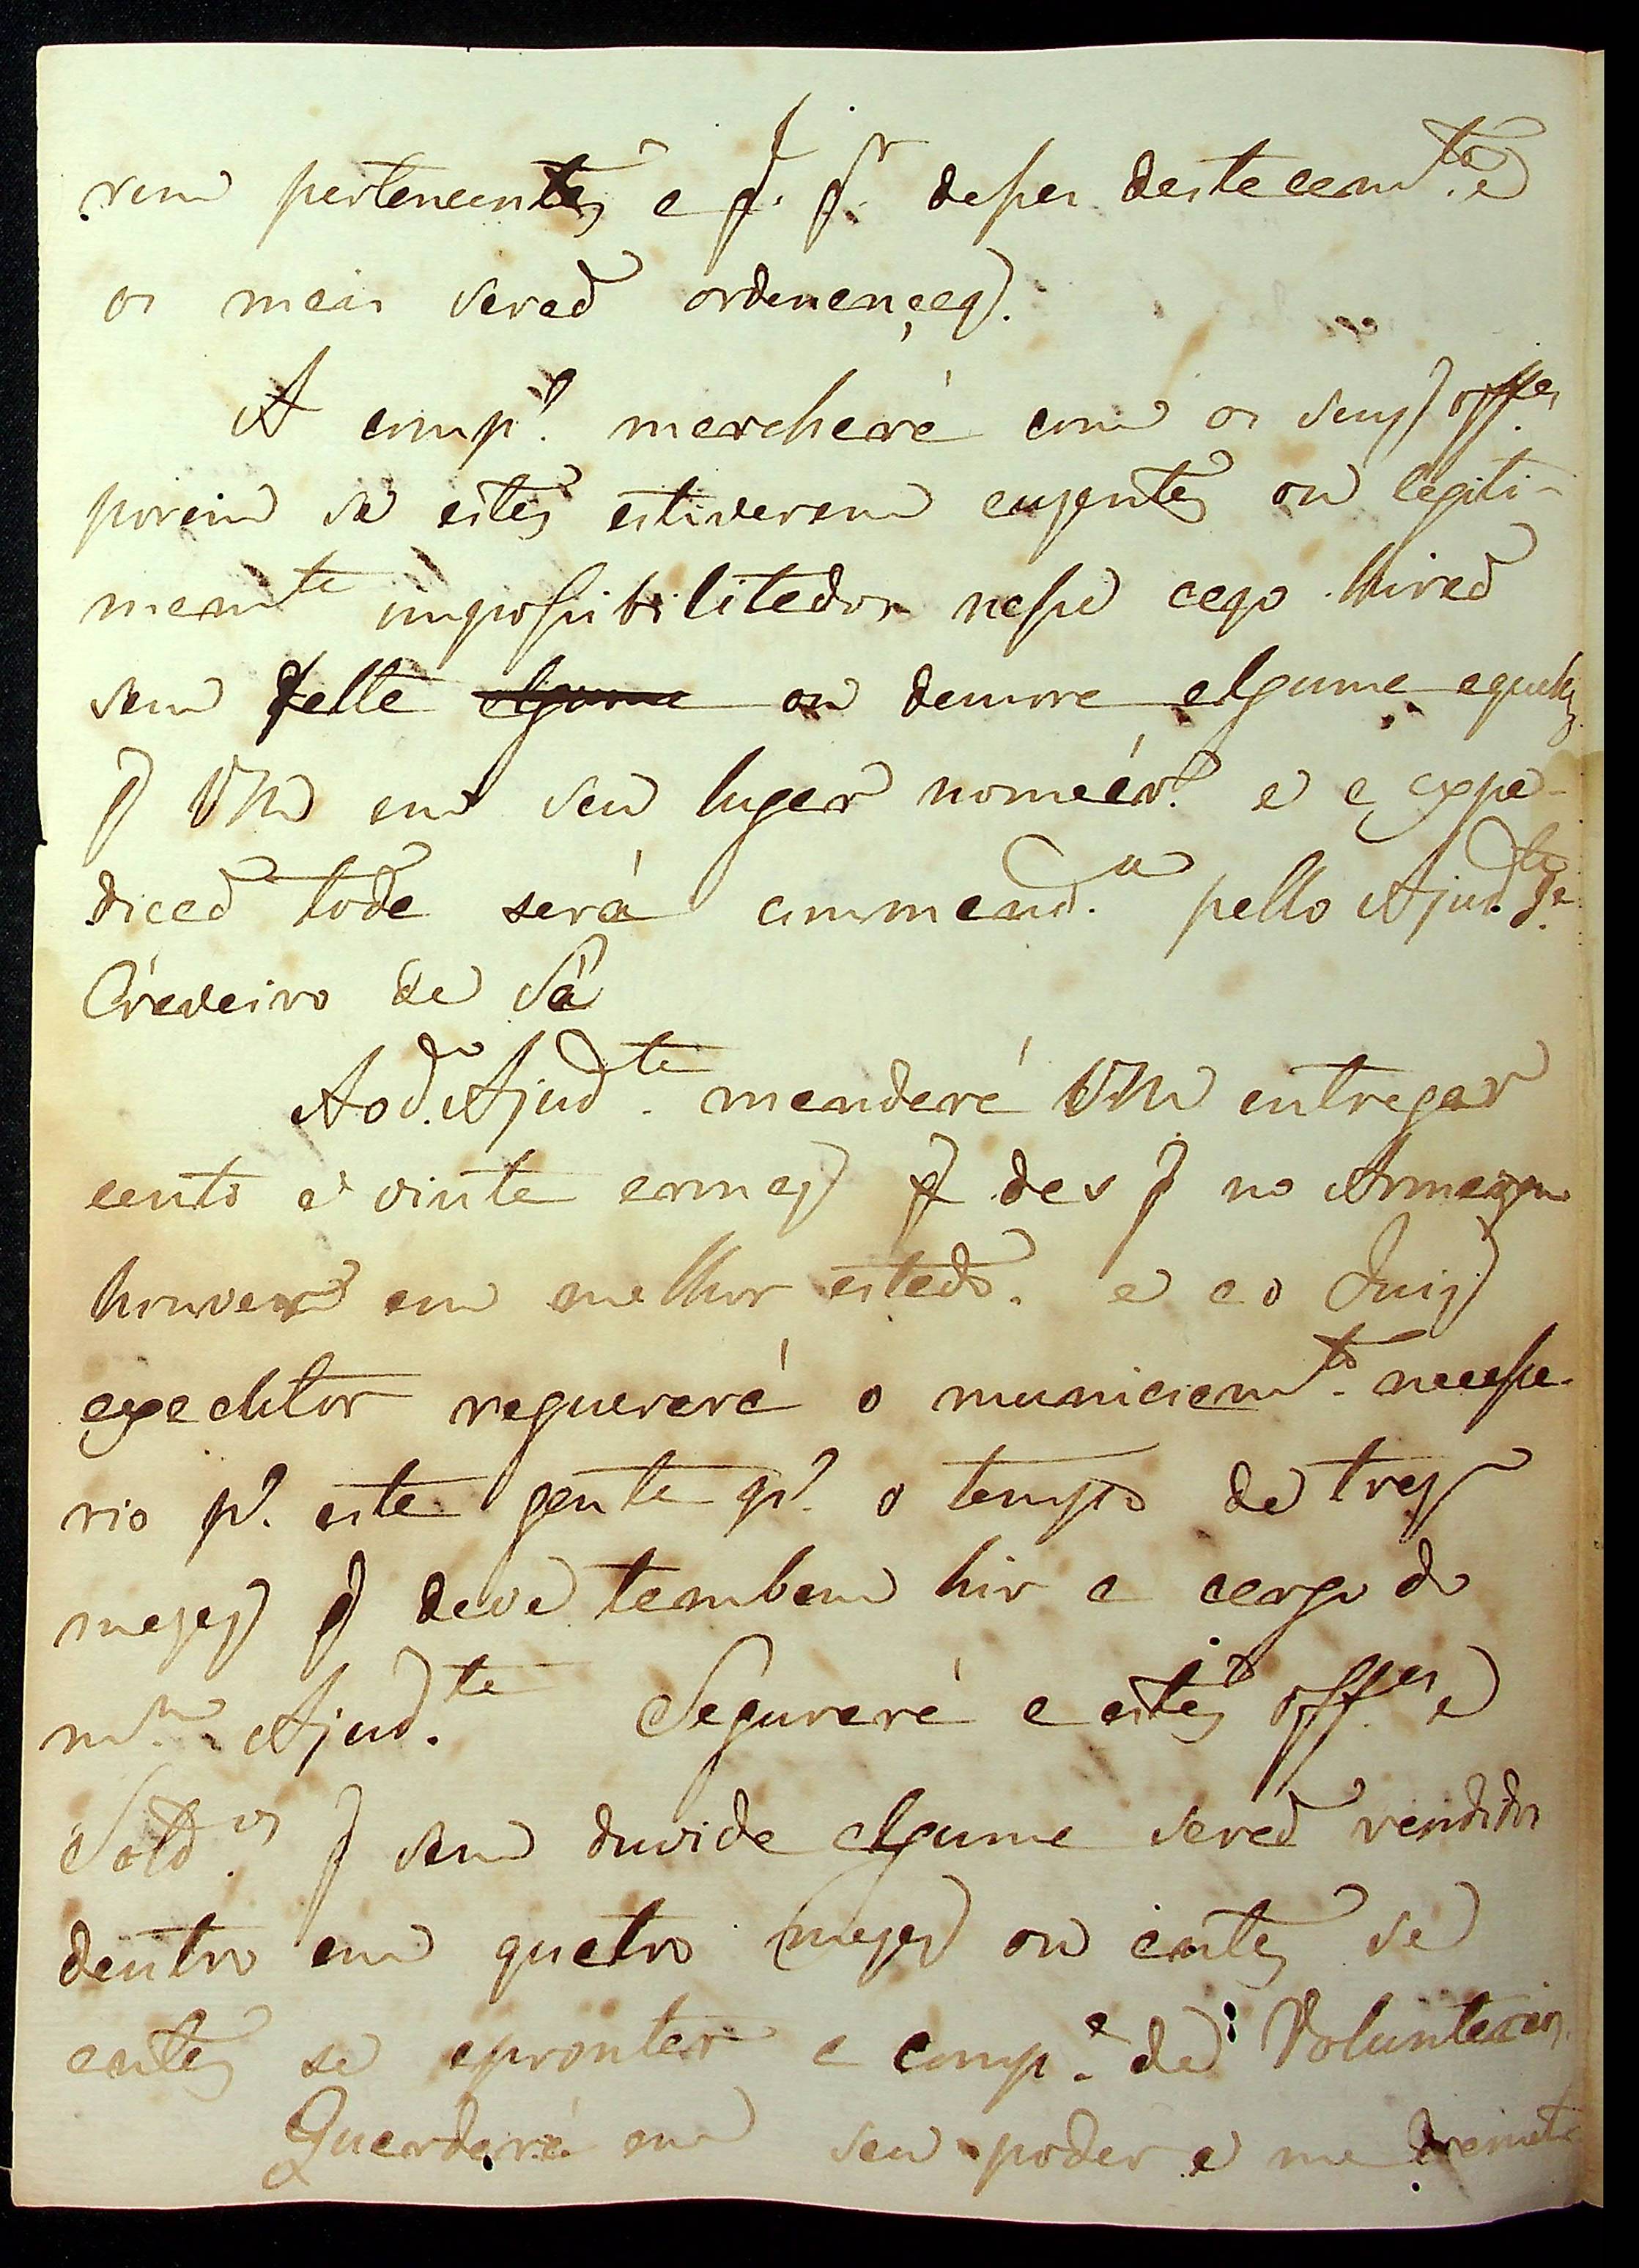 rem pertencentes e q. p.r depos destacam.to e
os mais seraõ ordenanças.
A comp.a marchará com os seus off.es
porem se estes estiverem auzentes ou legiti-
mam.te impossibilitados nesse cazo hiraõ
sem falta alguma ou demora alguma aqueles
q VM em seu lugar nomeár. e a expe-
diçaõ toda será command.a pello Ajud.te
Craveiro de Sá
Ao d.o Ajud.te mandará VM entregar
cento e vinte armas das q no Armazem
houver em melhor estado. e ao Juis
executor requererá o municiam.to necessa-
rio p.a esta gente p.a o tempo de tres
mezes q deve tambem hir a cargo do
m.mo Ajud.te Segurará a estes off.es e
Sold.os q sem duvida alguma seraõ rendidos
dentro em quatro mezes ou antes se
antes se aprontar a comp.a de Voluntarios.
Guardará em seu poder e me remete